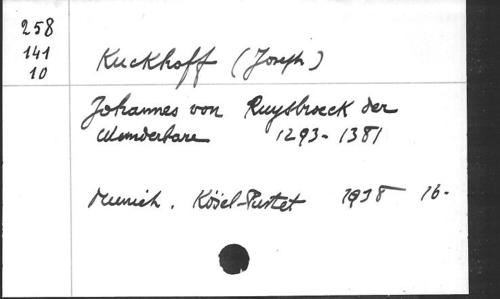 258
141
10
Kuckhoff (Joseph)
Johannes von Ruysbroeck der
Wunderbare 1293-1381
Munich. Kösel-Pustet 1938 16-